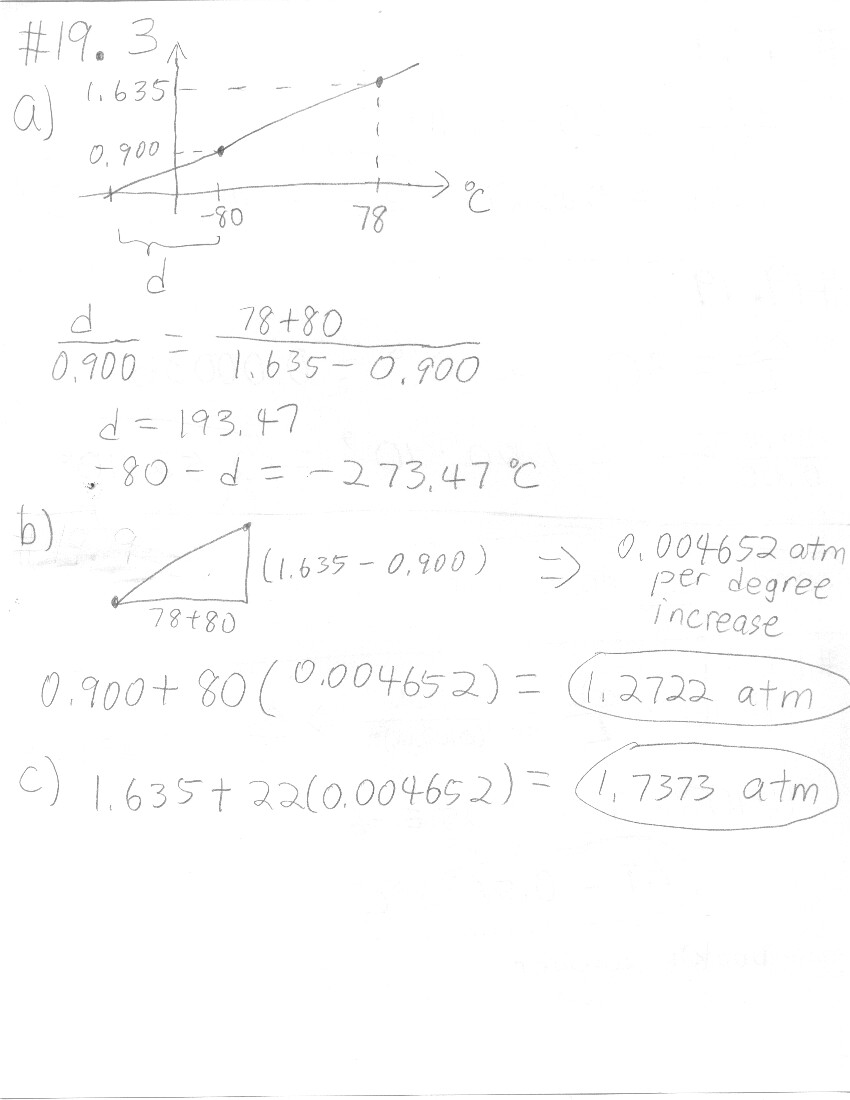 #19. 3
a)
1.635
0.900
-80
78
°C
d
d/0.900 = (78+80)/(1.635 - 0.900)
d = 193.47
-80 - d = -273.47 °C
b)
(1.635 - 0.900) ⇒ 0.004652 atm
per degree
increase
78+80
0.900 + 80(0.004652) = 1.2722 atm
c) 1.635 + 22(0.004652) = 1.7373 atm